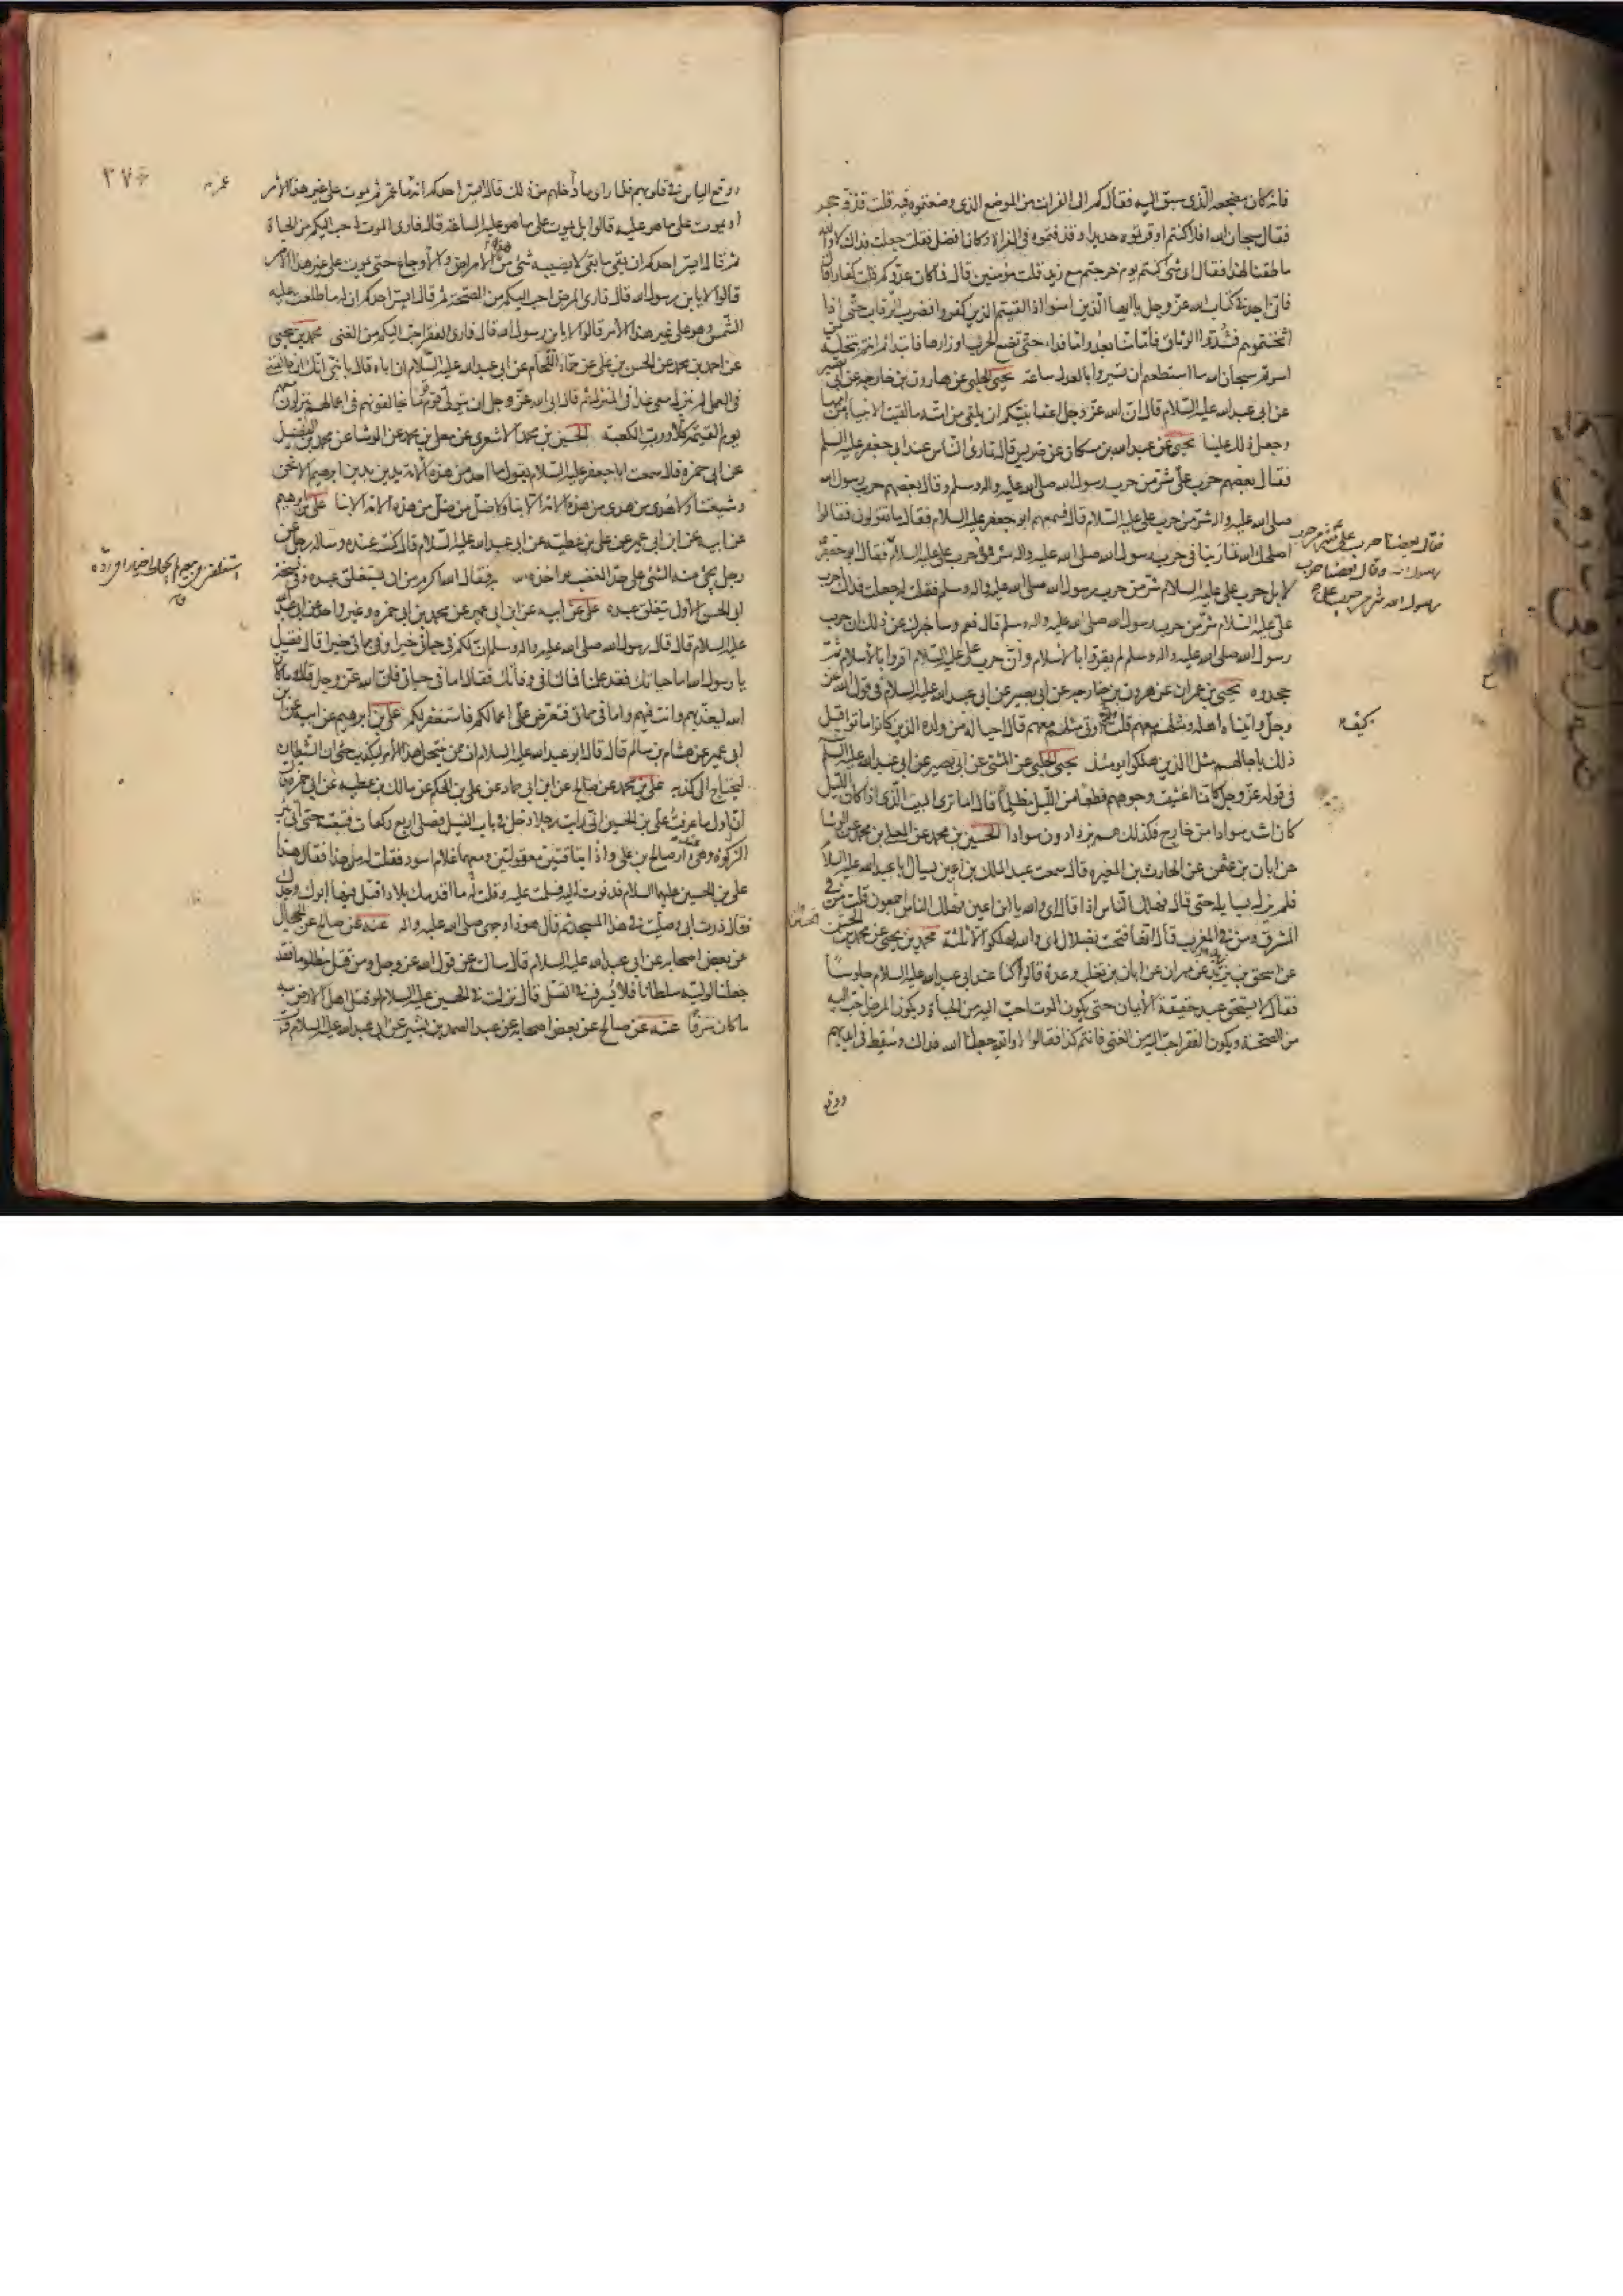 فانه كان مضجعه الذي سبق اليه فقال كم الى الفرات من الموضع الذي وضعتموه فيه قلت قذفة حجر
فقال سبحان الله افلا كنتم اوقرتموه حديدا وقذفتموه في الفراة وكان افضل فقلت جعلت فداك لا والله
ما طقنا لهذا فقال اي شئ كنتم يوم خرجتم مع زيد قلت مؤمنين قال فما كان عدوكم قلت كفارا قال
فاني اجد في كتاب الله عز وجل يا ايها الذين امنوا اذا لقيتم الذين كفروا فضرب الرقاب حتى اذا
اثخنتموهم فشدوا الوثاق فاما منا بعد واما فداء حتى تضع الحرب اوزارها فابتدأتم انتم بتخلية من
اسرتم سبحان الله ما استطعتم ان تسيروا بالعدل ساعة يحيى الحلبي عن هارون بن خارجه عن ابي بصير
عن ابي عبد الله عليه السلام قال ان الله عز وجل اعفا نبيكم ان يلقى من امته ما لقيت الانبيا من اممها
وجعل ذلك علينا يحيى عن عبد الله بن مسكان عن ضريس قال تمارى الناس عند ابي جعفر عليه السلم
فقال بعضهم حرب علي شر من حرب رسول الله صلى الله عليه واله وسلم وقال بعضهم حرب رسول الله
صلى الله عليه واله شر من حرب علي عليه السلام قال فسمعهم ابو جعفر عليه السلام فقال ما تقولون فقالوا
اصلحك الله تمارينا في حرب رسول الله صلى الله عليه واله وفي حرب علي عليه السلام فقال ابو جعفر
لا بل حرب علي عليه السلام شر من حرب رسول الله صلى الله عليه واله وسلم فقلت له جعلت فداك احرب
علي عليه السلام شر من حرب رسول الله صلى الله عليه واله وسلم قال نعم وساخبرك عن ذلك ان حرب
رسول الله صلى الله عليه واله وسلم لم يقروا بالاسلام وان حرب علي عليه السلام اقروا بالاسلام ثم
جحدوه يحيى بن عمران عن هرون بن خارجه عن ابي بصير عن ابي عبد الله عليه السلام في قول الله عز
وجل واتيناه اهله ومثلهم معهم قلت اوتي مثلهم معهم قال احيا له من ولده الذين كانوا ماتوا قبل
ذلك باجالهم مثل الذين هلكوا يومئذ يحيى الحلبي عن المثنى عن ابي بصير عن ابي عبد الله عليه السلم
في قوله عز وجل كانما اغشيت وجوههم قطعا من الليل مظلما قال اما ترى البيت الذي اذا كان الليل
كان اشد سوادا من خارج فكذلك هم يزدادون سوادا الحسين بن محمد عن المعلى بن محمد عن الوشا
عن ابان بن عثمن عن الحارث بن المغيره قال سمعت عبد الملك بن اعين يسال ابا عبد الله عليه السلام
فلم يزل يسايله حتى قال فهلك الناس اذا قال اي والله يا ابن اعين فهلك الناس اجمعون قلت من في
المشرق ومن في المغرب قال انها فتحت بضلال اي والله لهلكوا الا ثلثة محمد بن يحيى عن محمد بن الحسين
عن اسحق بن يزيد عن مهران عن ابان بن تغلب وعدة قالوا كنا عند ابي عبد الله عليه السلام جلوسا
فقال لا يستحق عبد حقيقة الايمان حتى يكون الموت احب اليه من الحياة ويكون المرض احب اليه
من الصحة ويكون الفقر احب اليه من الغنى فانتم كذا فقالوا لا والله جعلنا الله فداك وسقط في ايديهم
ووقع
فقال بعضنا حرب علي شر من حرب
رسول الله وقال بعضنا حرب
رسول الله شر من حرب علي
كيف
ووقع الياس في قلوبهم فلما راى ما داخلهم من ذلك قال ايسر احدكم انه ما عمر ثم يموت على غير هذا الامر
او يموت على ما هو عليه قالوا بل يموت على ما هو عليه الساعة قال فارى الموت احب اليكم من الحياة
ثم قال ايسر احدكم ان بقي ما بقي لا يصيبه شئ من هذه الامراض والاوجاع حتى يموت على غير هذا الامر
قالوا لا يا بن رسول الله قال فارى المرض احب اليكم من الصحة ثم قال ايسر احدكم ان له ما طلعت عليه
الشمس وهو على غير هذا الامر قالوا لا يا بن رسول الله قال فارى الفقر احب اليكم من الغنى محمد بن يحيى
عن احمد بن محمد عن الحسن بن علي عن حماد اللحام عن ابي عبد الله عليه السلام ان اباه قال يا بني انك ان خالفتني
في العمل لم تنزل معي غدا في المنزل ثم قال ابى الله عز وجل ان يتولى قوم قوما يخالفونهم في اعمالهم ينزلون معهم
يوم القيمة كلا ورب الكعبة الحسين بن محمد الاشعري عن معلى بن محمد عن الوشا عن محمد بن الفضيل
عن ابي حمزة قال سمعت ابا جعفر عليه السلام يقول ما احد من هذه الامة يدين بدين ابرهيم الا نحن
وشيعتنا ولا هدي من هدي من هذه الامة الا بنا ولا ضل من ضل من هذه الامة الا بنا علي بن ابرهيم
عن ابيه عن ابن ابي عمير عن علي بن عطية عن ابي عبد الله عليه السلام قال كنت عنده وساله رجل عن
رجل يجئ منه الشئ على حد الغضب يواخذه الله به فقال الله اكرم من ان يستغلق عبده وفي نسخة
ابي الحسن الاول يستقلق عبده علي عن ابيه عن ابن ابي عمير عن محمد بن ابي حمزه وغير واحد عن ابي عبد الله
عليه السلام قال قال رسول الله صلى الله عليه واله وسلم ان لكم في حياتي خيرا وفي مماتي خيرا قال فقيل
يا رسول الله اما حياتك فقد علمنا فما لنا في وفاتك فقال اما في حياتي فان الله عز وجل قال وما كان
الله ليعذبهم وانت فيهم واما في مماتي فتعرض علي اعمالكم فاستغفر لكم علي بن ابرهيم عن ابيه عن ابن
ابي عمير عن هشام بن سالم قال قال ابو عبد الله عليه السلام ان ممن ينتحل هذا الامر ليكذب حتى ان الشيطان
ليحتاج الى كذبه علي بن محمد عن صالح عن ابن ابي حماد عن علي بن الحكم عن مالك بن عطيه عن ابي حمزه قال
ان اول ما عرفت علي بن الحسين اني رايت رجلا دخل من باب الفيل فصلى اربع ركعات فتبعته حتى اتى بئر
الزكوة وهي عند دار صالح بن علي واذا بناقتين معقولتين ومعهما غلام اسود فقلت له من هذا فقال هذا
علي بن الحسين عليهما السلام فدنوت اليه فسلمت عليه وقلت له ما اقدمك بلادا قتل فيها ابوك وجدك
فقال زرت ابي وصليت في هذا المسجد ثم قال هو ذا وجهي صلى الله عليه واله عنه عن صالح عن الحجال
عن بعض اصحابه عن ابي عبد الله عليه السلام قال سالته عن قول الله عز وجل ومن قتل مظلوما فقد
جعلنا لوليه سلطانا فلا يسرف في القتل قال نزلت في الحسين عليه السلام لو قتل اهل الارض به
ما كان سرفا عنه عن صالح عن بعض اصحابه عن عبد الصمد بن بشير عن ابي عبد الله عليه السلام قال
٢٧٠